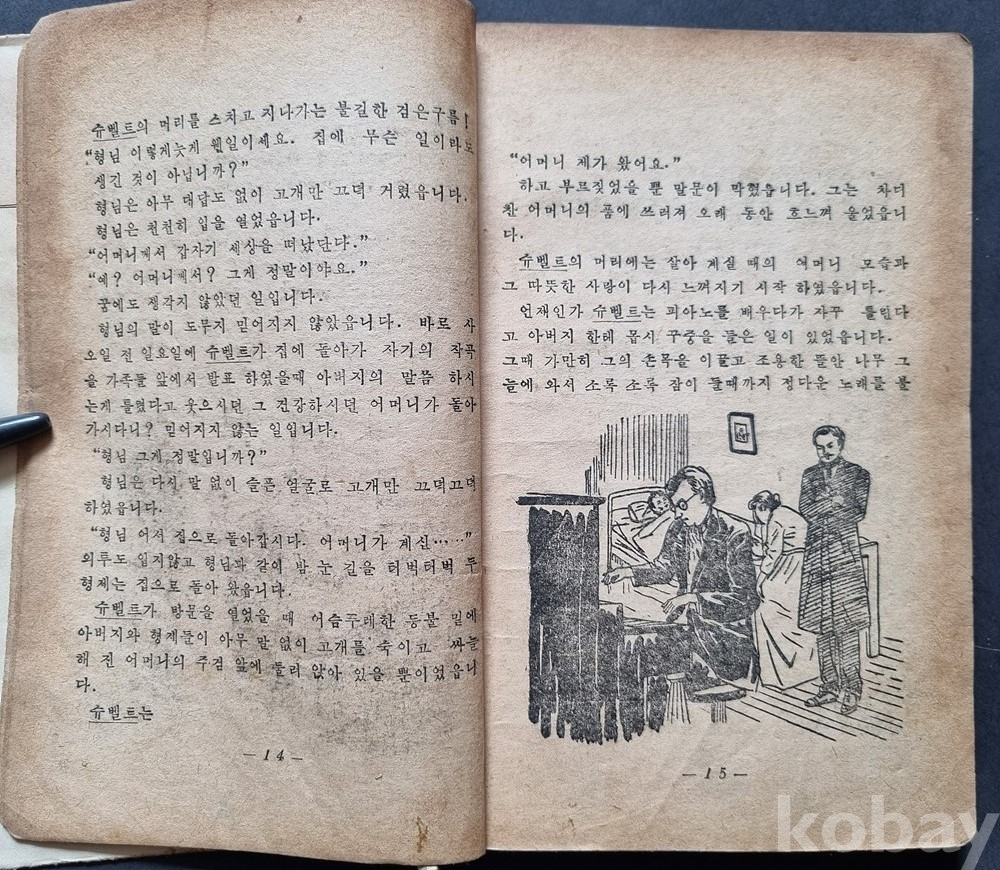 슈벨트의 머리를 스치고 지나가는 불길한 검은구름!
“형님 이렇게늦게 웬일이세요. 집에 무슨 일이라도
생긴 것이 아닙니까?”
형님은 아무 대답도 없이 고개만 끄덕 거렸읍니다.
형님은 천천히 입을 열었읍니다.
“어머니께서 갑자기 세상을 떠났단다.”
“예? 어머니께서? 그게 정말이야요.”
꿈에도 생각지 않았던 일입니다.
형님의 말이 도무지 믿어지지 않았읍니다. 바로 사
오일 전 일요일에 슈벨트가 집에 돌아가 자기의 작곡
을 가족들 앞에서 발표 하였을때 아버지의 말씀 하시
는게 틀렸다고 웃으시던 그 건강하시던 어머니가 돌아
가시다니? 믿어지지 않는 일입니다.
“형님 그게 정말입니까?”
형님은 다시 말 없이 슬픈 얼굴로 고개만 끄덕끄덕
하였읍니다.
“형님 어서 집으로 돌아갑시다. 어머니가 계신……”
외투도 입지않고 형님과 같이 밤 눈 길을 터벅터벅 두
형제는 집으로 돌아 왔읍니다.
슈벨트가 방문을 열었을 때 어슴푸레한 등불 밑에
아버지와 형제들이 아무 말 없이 고개를 숙이고 싸늘
해 진 어머니의 주검 앞에 둘러 앉아 있을 뿐이었읍니
다.
슈벨트는
—14—
“어머니 제가 왔어요.”
하고 부르짖었을 뿐 말문이 막혔읍니다. 그는 차디
찬 어머니의 품에 쓰러져 오래 동안 흐느껴 울었읍니
다.
슈벨트의 머리에는 살아 계실 때의 어머니 모습과
그 따뜻한 사랑이 다시 느껴지기 시작 하였읍니다.
언재인가 슈벨트는 피아노를 배우다가 자꾸 틀린다
고 아버지 한테 몹시 꾸중을 들은 일이 있었읍니다.
그때 가만히 그의 손목을 이끌고 조용한 뜰안 나무 그
늘에 와서 소록 소록 잠이 들때까지 정다운 노래를 불
—15—
kobay